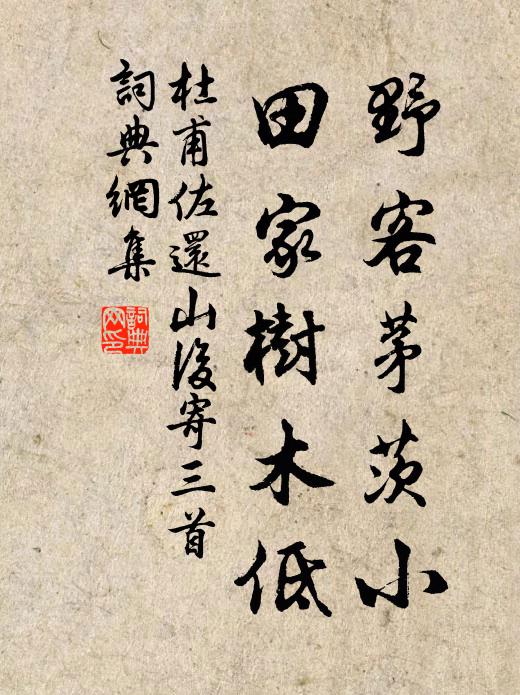 野客茅茨小
田家樹木低
杜甫佐還山後寄三首
詞典網集
詞典
网印